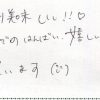 美味しい!!♡
のはんばい、嬉しい
います(:)